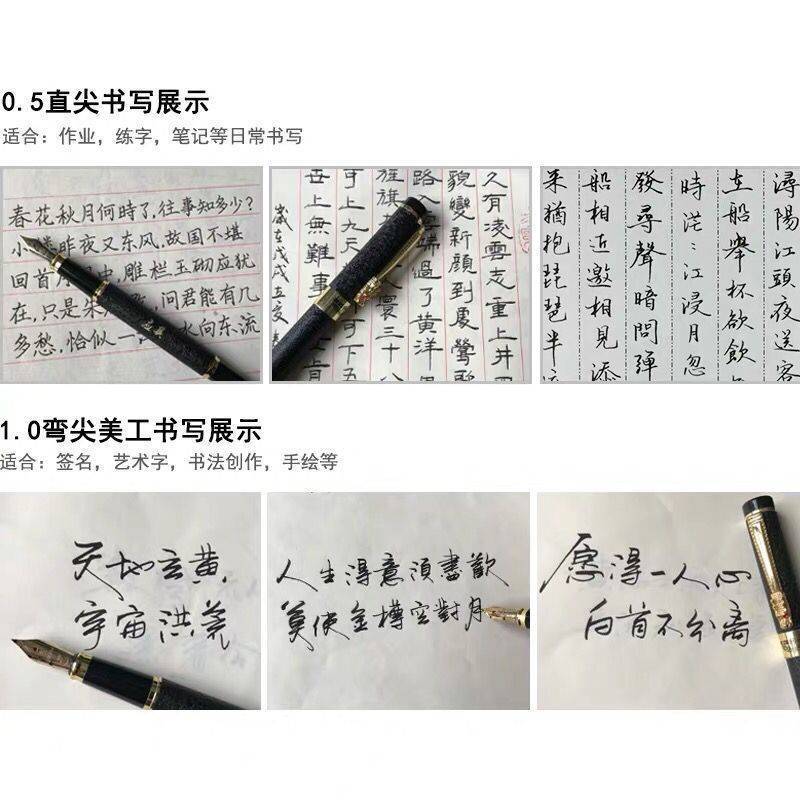 0.5直尖书写展示
适合：作业，练字，笔记等日常书写
春花秋月何時了,往事知多少?
小楼昨夜又东风,故国不堪
回首月中,雕栏玉砌应犹
在,只是朱,问君能有几
多愁,恰似一水向东流
久有凌雲志重上井
貌變新顏到處鶯歌
路入雲端過了黃洋界
旌旗寰三十八
可上九天可下五
世上無難事上肯
歲在戊戌
潯陽江頭夜送客
在船舉杯欲飲
時茫〻江浸月忽
發尋聲暗問彈
船相近邀相見添
来猶抱琵琶半
1.0弯尖美工书写展示
适合：签名，艺术字，书法创作，手绘等
天地玄黄,
宇宙洪荒
人生得意須盡歡
莫使金樽空對月
愿得一人心
白首不分离